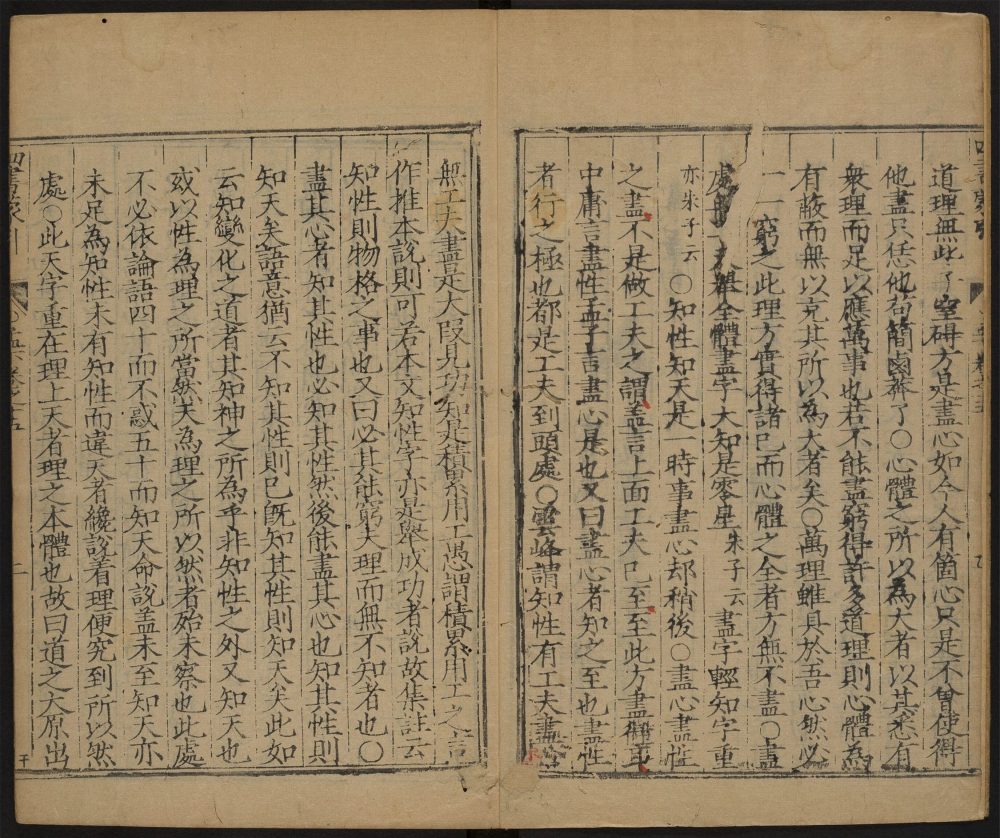 道理無此了窒礙方是盡心如今人有箇心只是不曾使得
他盡只恁他苟簡鹵莽了○心體之所以為大者以其悉有
衆理而足以應萬事也若不能盡窮得許多道理則心體為
有蔽而無以充其所以為大者矣○萬理雖具於吾心然必
一一窮之此理方實得諸己而心體之全者方無不盡○盡
處 全體盡字大知是零星朱子云盡字輕知字重
亦朱子云○知性知天是一時事盡心却稍後○盡心盡性
之盡不是做工夫之謂盖言上面工夫已至至此方盡得耳
中庸言盡性孟子言盡心是也又曰盡心者知之至也盡性
者行之極也都是工夫到頭處○雲峰謂知性有工夫盡心
無工夫盡是大段見功知是積累用工愚謂積累用工之言
作推本說則可若本文知性字亦是舉成功者說故集註云
知性則物格之事也又曰必其能窮夫理而無不知者也○
盡其心者知其性也必知其性然後能盡其心也知其性則
知天矣語意猶云不知其性則已旣知其性則知天矣此如
云知變化之道者其知神之所為乎非知性之外又知天也
或以性為理之所當然天為理之所以然者始未察也此處
不必依論語四十而不惑五十而知天命說盖未至知天亦
未足為知性未有知性而違天者纔說着理便究到所以然
處○此天字重在理上天者理之本體也故曰道之大原出